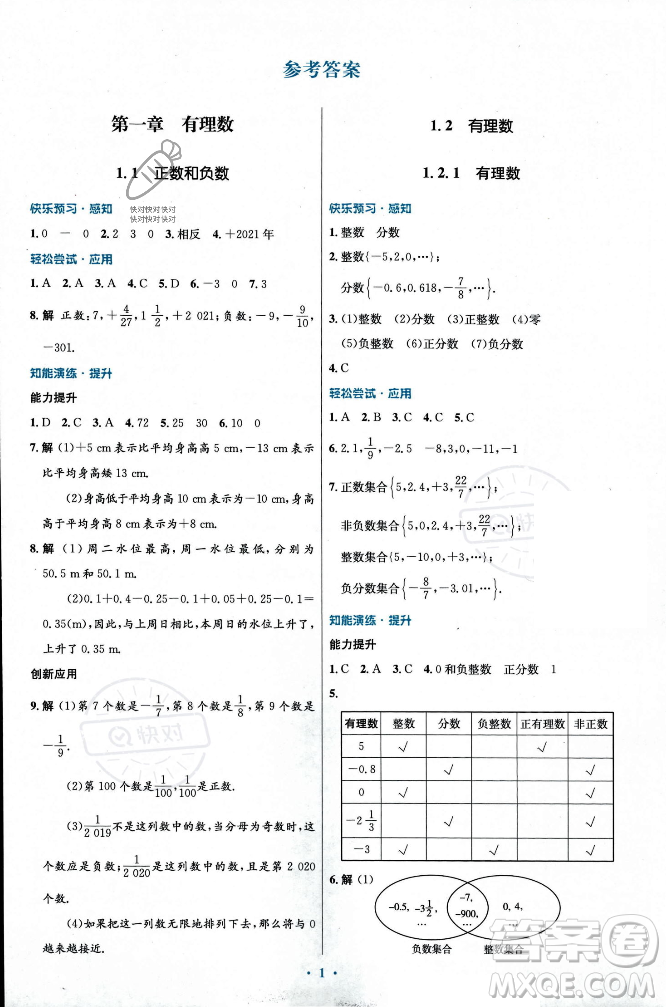 参考答案
第一章 有理数
1.1 正数和负数
快乐预习·感知
快对快对快对
快对快对快对
1.0 - 0 2.2 3 0 3.相反 4.+2021年
轻松尝试·应用
1.A 2.A 3.A 4.C 5.D 6.-3 0 7.3
8.解 正数:7,+4/27,1 1/2,+2 021;负数:-9,-9/10,
-301.
知能演练·提升
能力提升
1.D 2.C 3.A 4.72 5.25 30 6.10 0
7.解 (1)+5 cm表示比平均身高高5 cm,-13 cm表示
比平均身高矮13 cm.
(2)身高低于平均身高10 cm表示为-10 cm,身高
高于平均身高8 cm表示为+8 cm.
8.解 (1)周二水位最高,周一水位最低,分别为
50.5 m和50.1 m.
(2)0.1+0.4-0.25-0.1+0.05-0.25+0.4=
0.35(m),由此可知,与上周日相比,本周日的水位上升了,
上升了0.35 m.
创新应用
9.解 (1)第7个数是-1/7,第8个数是1/8,第9个数是
-1/9.
(2)第100个数是1/100.
(3)1/2 019不是这列数中的数,当分母为奇数时,这
个数应是负数;1/2 020是这列数中的数,是第2 020
个数.
(4)如果把这一列数无限地排列下去,将会与0
越来越接近.
1.2 有理数
1.2.1 有理数
快乐预习·感知
1.整数 分数
2.整数{-5,2,0,…};
分数{-0.6,0.618,-7/8,…}.
3.(1)整数 (2)分数 (3)正整数 (4)零
(5)负整数 (6)正分数 (7)负分数
4.C
轻松尝试·应用
1.A 2.B 3.D 4.D 5.C
6.2.1,1/9,-2.5 -8,3,0,-11,-1
7.正数集合{5,2.4,+3,22/7,…};
非负数集合{5,0,2.4,+3,22/7,…};
整数集合{5,-10,0,+3,…};
负分数集合{-8/7,-3.01,…}.
知能演练·提升
能力提升
1.C 2.A 3.C 4.0和负整数 正分数 1
5.
有理数 整数 分数 负整数 正有理数 非正数
5 √ √
-0.8 √ √
0 √ √
-2 1/3 √ √
-3 √ √ √
6.解 (1)
-0.5, -3 1/2, -7, -900, 0, 4, …
负数集合 整数集合
· 1 ·
快对
答案圈
MXQE.COM